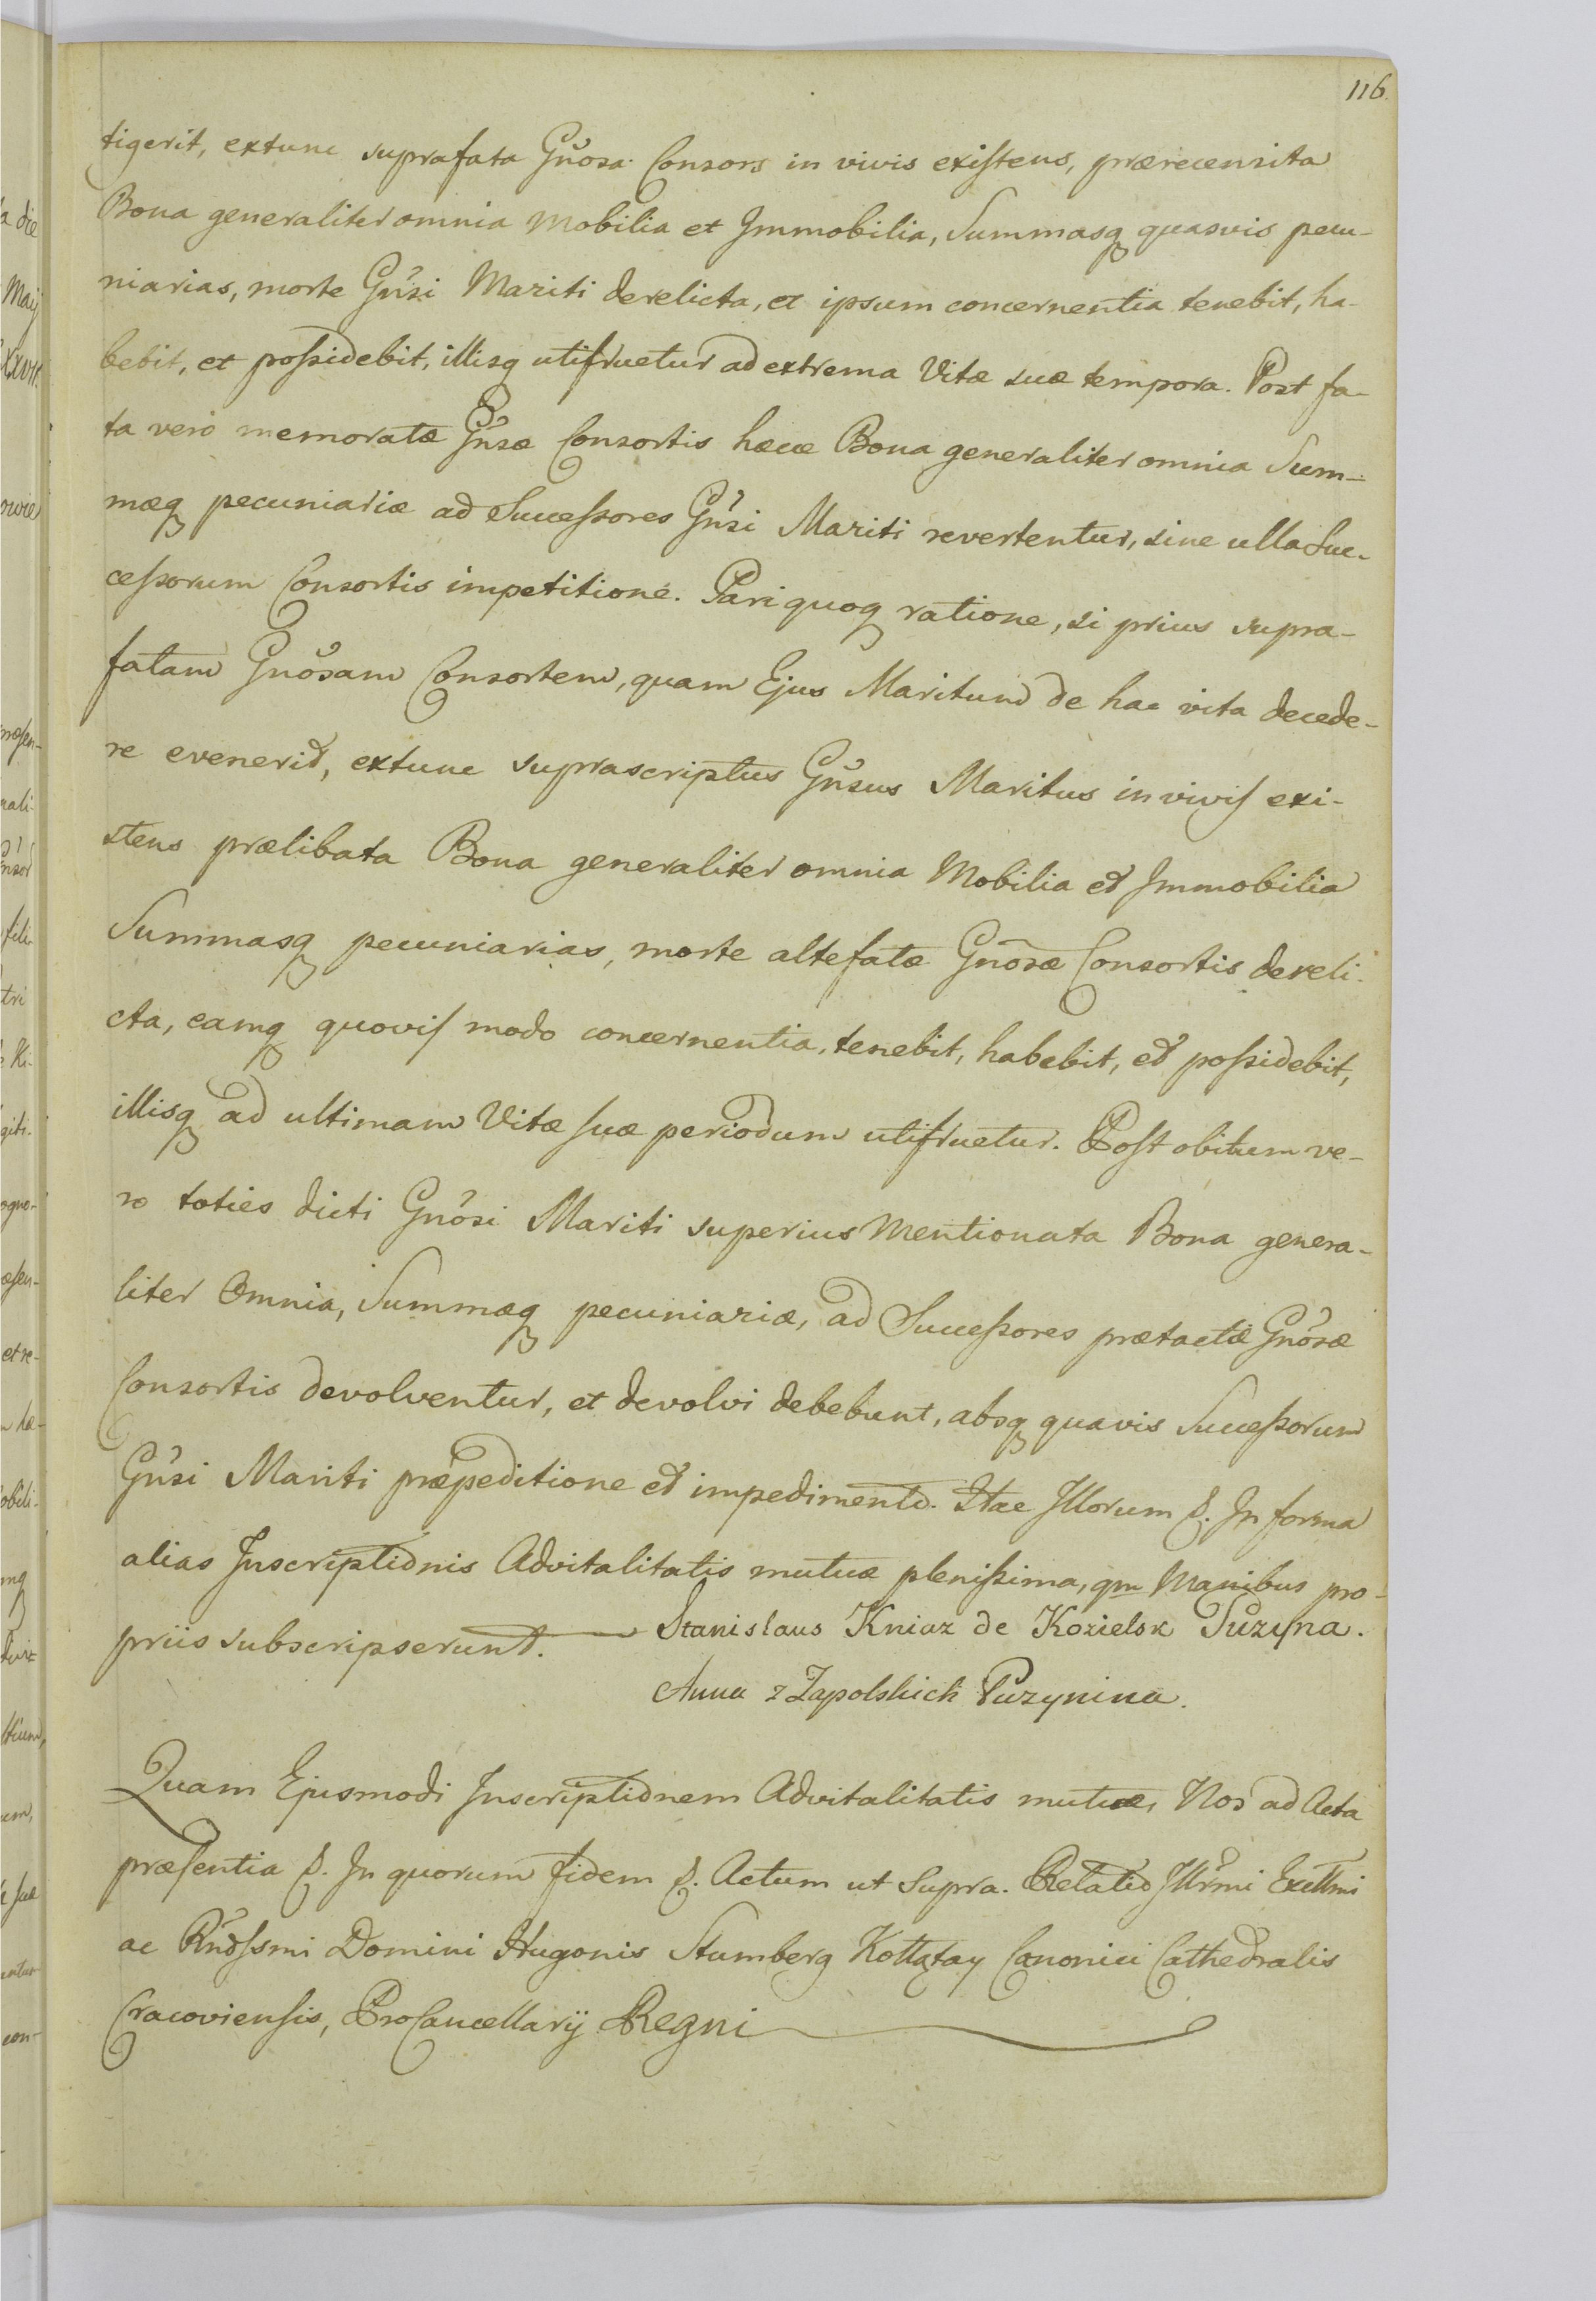 116.
tigerit, extunc suprafata Gnosa Consors in vivis existens, prærecensita
Bona generaliter omnia Mobilia et Immobilia, Summasq quasvis pecu-
niarias, morte Gnsi Mariti derelicta, et ipsum concernentia tenebit, ha-
bebit, et possidebit, illisq utifruetur ad extrema Vitæ suæ tempora. Post fa-
ta vero memoratæ Gnsæ Consortis hæce Bona generaliter omnia Sum-
mæq pecuniariæ ad Successores Gnsi Mariti revertentur, sine ulla Suc-
cessorum Consortis impetitione. Pari quoq ratione, si prius supra-
fatam Gnosam Consortem, quam Ejus Maritum de hac vita decede-
re evenerit, extunc suprascriptus Gnsus Maritus in vivis exi-
stens prælibata Bona generaliter omnia Mobilia et Immobilia
Summasq pecuniarias, morte altefatæ Gnosæ Consortis dereli-
cta, eamq quovis modo concernentia, tenebit, habebit, et possidebit,
illisq ad ultimam Vitæ suæ periodum utifruetur. Post obitum ve-
ro toties dicti Gnosi Mariti superius Mentionata Bona genera-
liter Omnia, Summæq pecuniariæ, ad Successores prætactæ Gnosæ
Consortis devolventur, et devolvi debebunt, absq quavis Successorum
Gnsi Mariti præpeditione et impedimento. Itae Illorum &. In forma
alias Inscriptionis Advitalitatis mutuæ plenissima, qm Manibus pro-
priis subscripserunt. Stanislaus Kniaz de Kozielsk Puzyna.
Anna z Zapolskich Puzynina.
Quam Ejusmodi Inscriptionem Advitalitatis mutuæ, Nos ad Acta
præsentia &. In quorum fidem &. Actum ut Supra. Relatio Illrmi Excllmi
ac Rndssmi Domini Hugonis Stumberg Kołłątay Canonici Cathedralis
Cracoviensis, ProCancellarij Regni